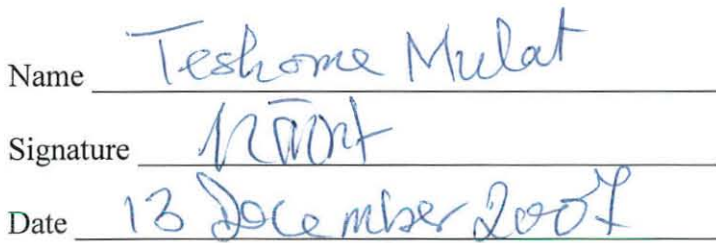 Name Teshome Mulat
Signature
Date 13 December 2007